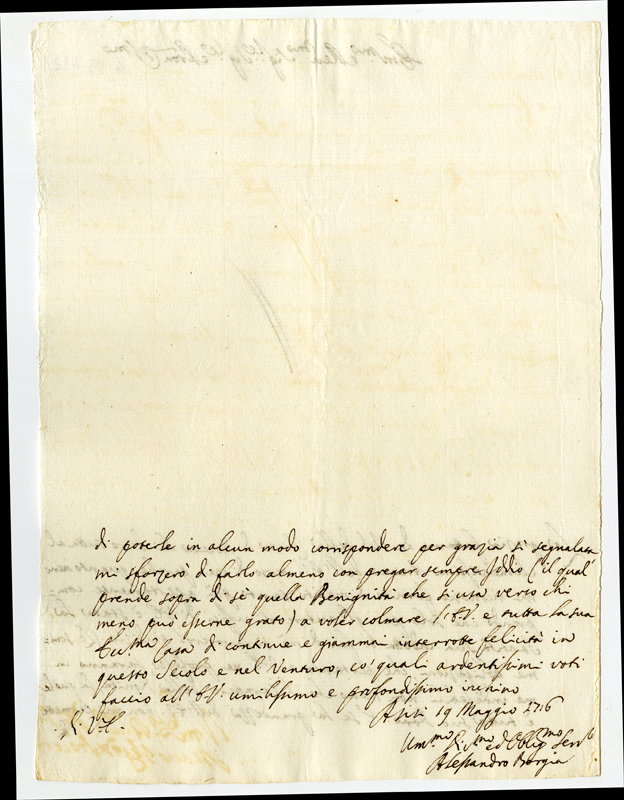 di poterle in alcun modo corrispondere per grazia sì segnalata
mi sforzerò di farlo almeno con pregar sempre Iddio (il qual'
prende sopra di sè quella Benignità che si usa verso chi
meno può esserne grato) a voler colmare e tutta la sua
Casa di continue e giammai interrotte felicità in
questo Secolo e nel Venturo, co' quali ardentissimi voti
faccio all' umilissimo e profondissimo inchino
19 Maggio 1716
Um.mo ed Oblig.mo
Alessandro Borgia